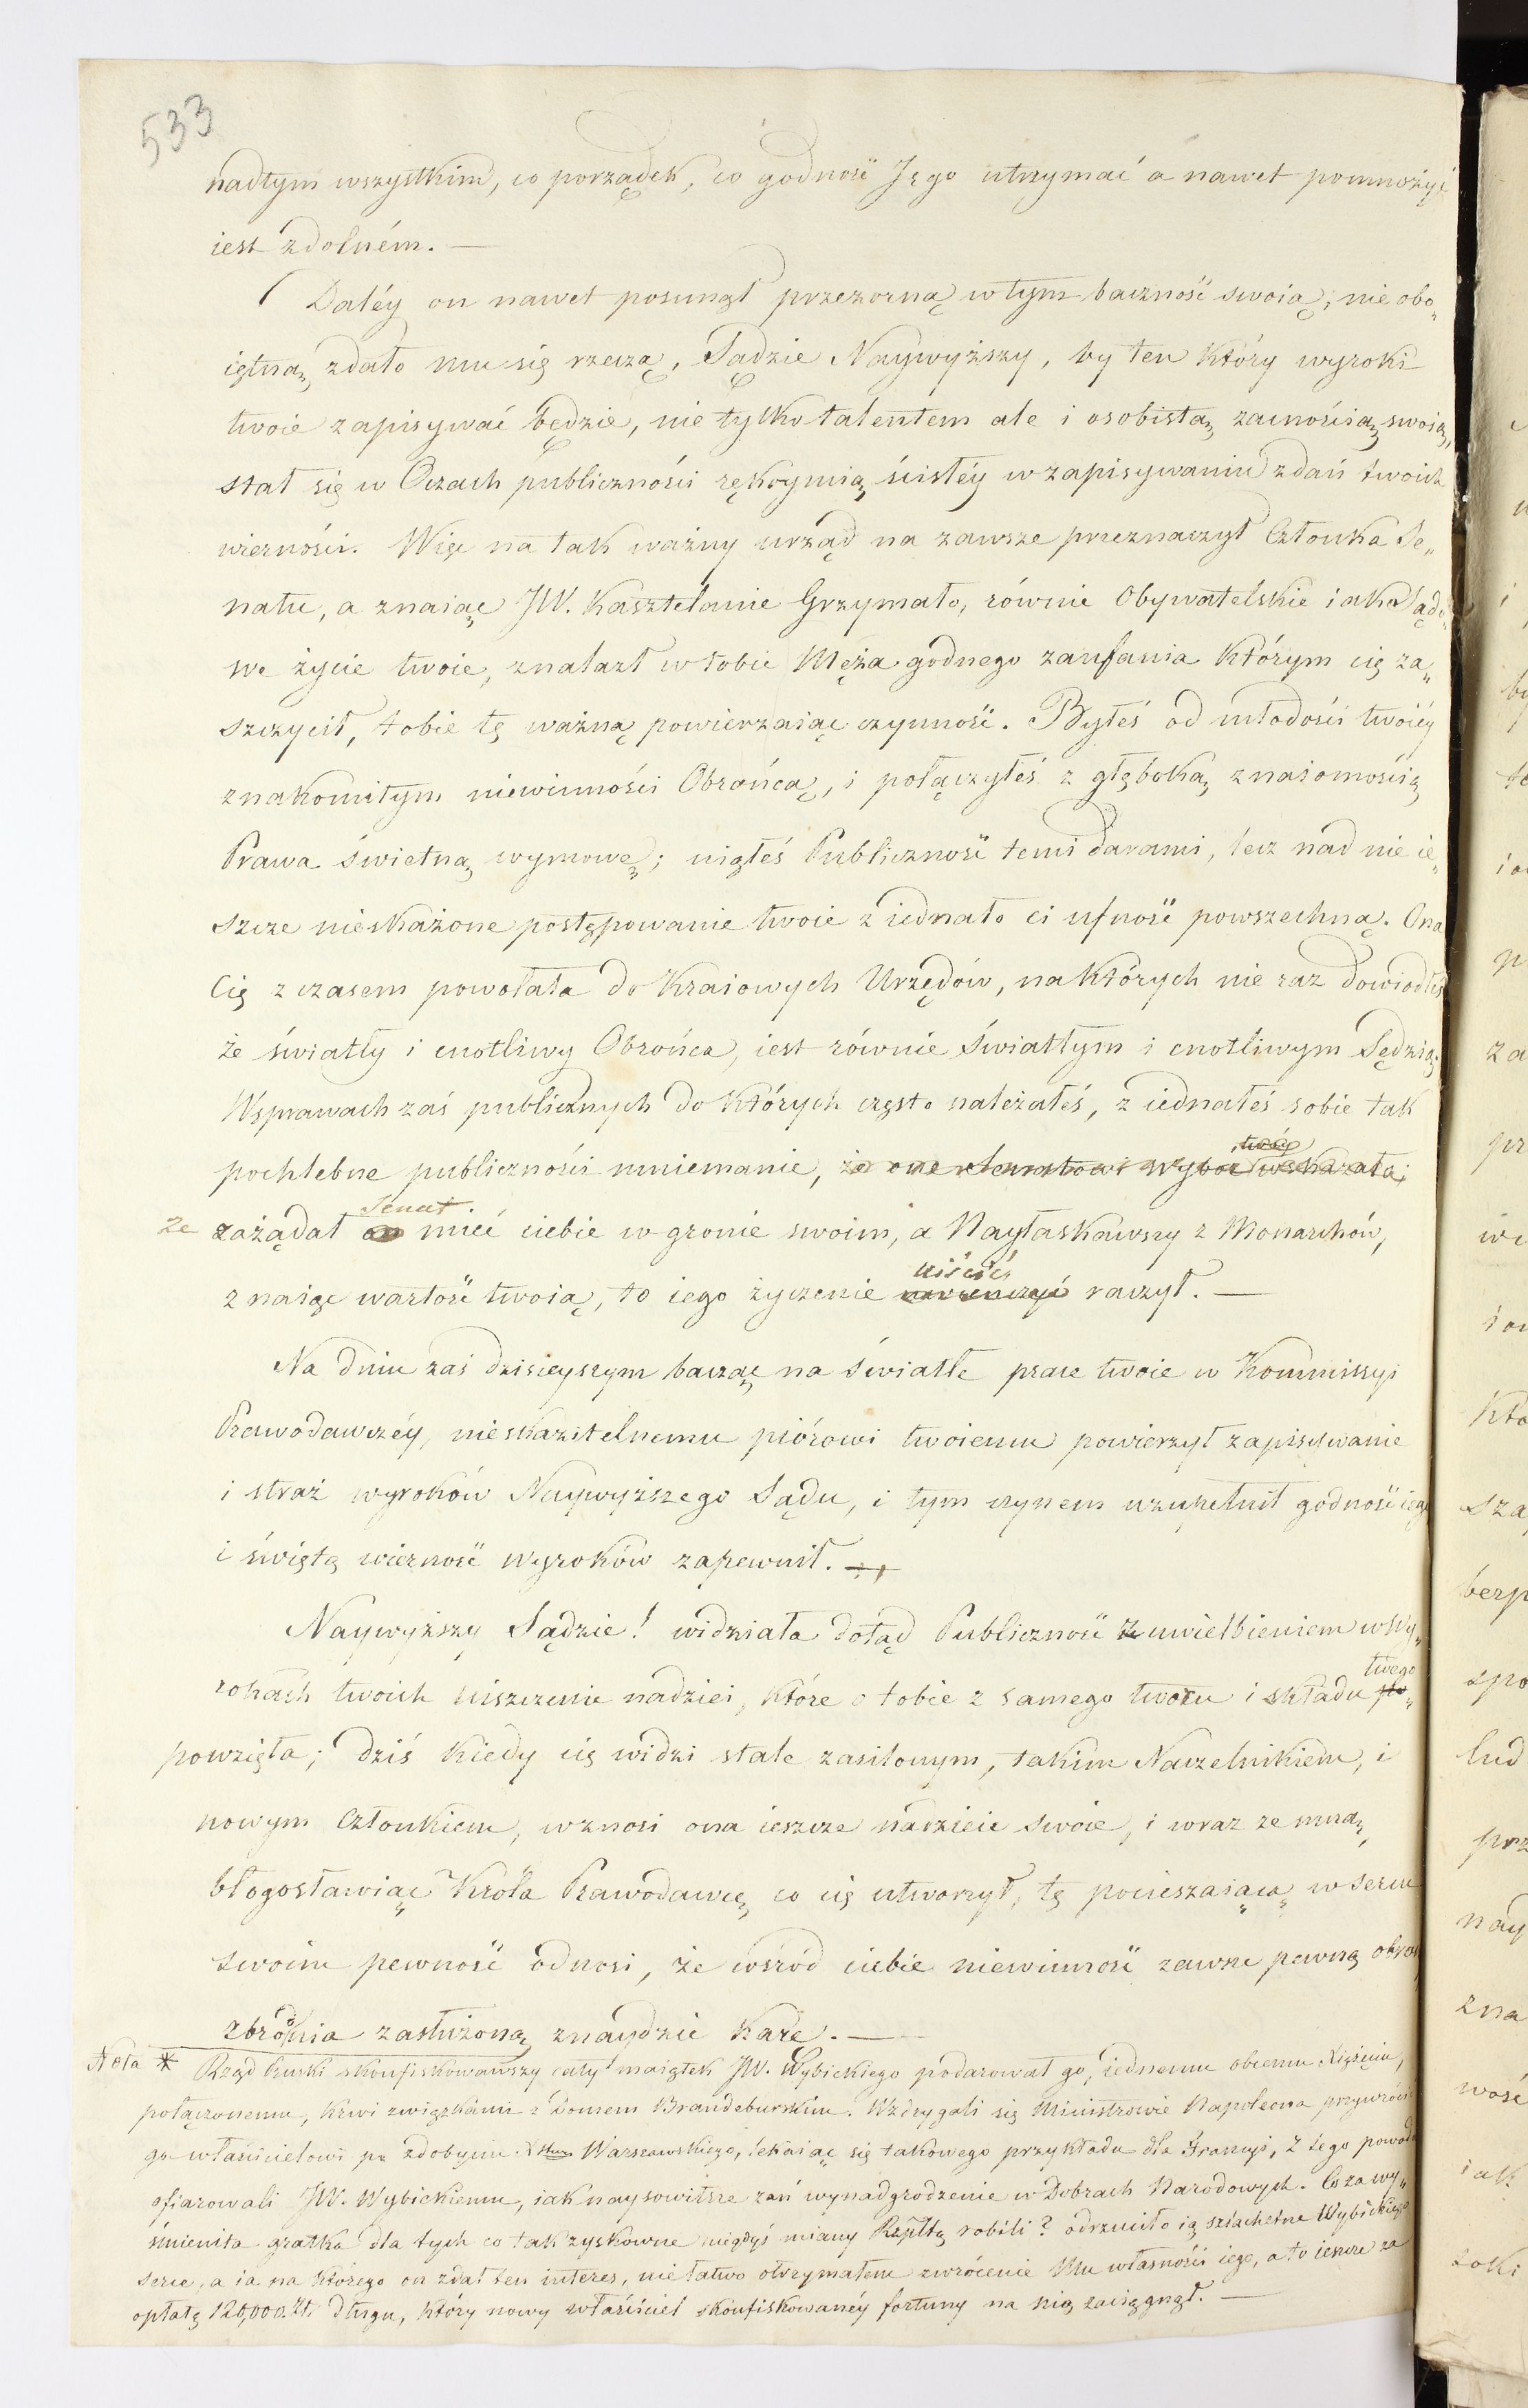 533
nadtym wszystkim, co porządek, co godność Jego utrzymać a nawet pomnożyć
iest zdolném. —
Daléy on nawet posunął przezorną w tym baczność swoią, nie obo„
iętną zdało mu się rzeczą, Sądzie Naywyższy, by ten który wyroki
twoie zapisywać będzie, nie tylko talentem ale i osobistą zacnością swoią,
stał się w Oczach publiczności rękoymią ścistéy w zapisywaniu zdań twoich
wierności. Więc na tak ważny urząd na zawsze przeznaczył Członka Se„
natu, a znaiąc JW. Kasztelanie Grzymało, równie Obywatelskie iako Sądo„
we życie twoie, znalazł w tobie Męża godnego zaufania którym cię za„
szczycił, tobie tę ważną powierzaiąc czynność. Byłeś od młodości twoiéy
znakomitym niewinności Obrońcą, i połączyłeś z głęboką znaiomością
Prawa świetną wymowę; uiąłeś Publiczność temi darami, lecz nad nie ie„
szcze nieskażone postępowanie twoie ziednało ci ufność powszechną. Ona
Cię z czasem powołała do Kraiowych Urzędów, na których nie raz dowiodłeś
że światły i cnotliwy Obrońca, iest równie światłym i cnotliwym Sędzią.
W sprawach zaś publicznych do których często należałeś, ziednałeś sobie tak
twóy
pochlebne publiczności mniemanie, że one Senatowi wybór wskazało;
Senat.
że zażądał on mieć ciebie w gronie swoim, a Nayłaskawszy z Monarchów,
uiścić
znaiąc wartość twoią, to iego życzenie uwieńczyć raczył. —
Na dniu zaś dzisieyszym bacząc na światłe prace twoie w Kommissyi
Prawodawczéy, nieskazitelnemu piórowi twoiemu powierzył zapisywanie
i straż wyroków Naywyższego Sądu, i tym czynem uzupełnił godność iego
i świętą wierność wyroków zapewnił. —
Naywyższy Sądzie! widziała dotąd Publiczność z uwielbieniem w Wy„
twego
rokach twoich uiszczenie nadziei, które o tobie z samego tworu i składu po„
powzięła; dziś kiedy cię widzi stale zasilonym, takim Naczelnikiem, i
nowym Członkiem, wznosi ona ieszcze nadzieie swoie, i wraz ze mną,
błogosławiąc Króla Prawodawcę, co cię utworzył, tę pocieszaiącą w sercu
swoim pewność odnosi, że wśród ciebie niewinność zawsze pewną obronę
zbrodnia zasłużoną znaydzie karę. —
Nota * Rząd Pruski skonfiskowawszy cały maiątek JW. Wybickiego podarował go, iednemu obcemu Xiążęciu,
połączonemu, krwi związkami z Domem Brandeburskim. Wzdrygali się Ministrowie Napoleona przywrócić
go właścicielowi po zdobyciu Xstwa Warszawskiego, lękaiąc się takowego przykładu dla Francyi, z tego powodu
ofiarowali JW. Wybickiemu, iak naysowitsze zań wynadgrodzenie w Dobrach Narodowych. Co za wy„
śmienita gratka dla tych co tak zyskowne niegdyś miany Rzpltą robili? odrzuciło ią szlachetne Wybickiego
serce, a ia na którego on zdał ten interes, nie łatwo otrzymałem zwrócenie Mu własności iego, a to ieszcze za
opłatą 120,000 zł. długu, który nowy właściciel skonfiskowanéy fortuny na nią zaciągnął. —